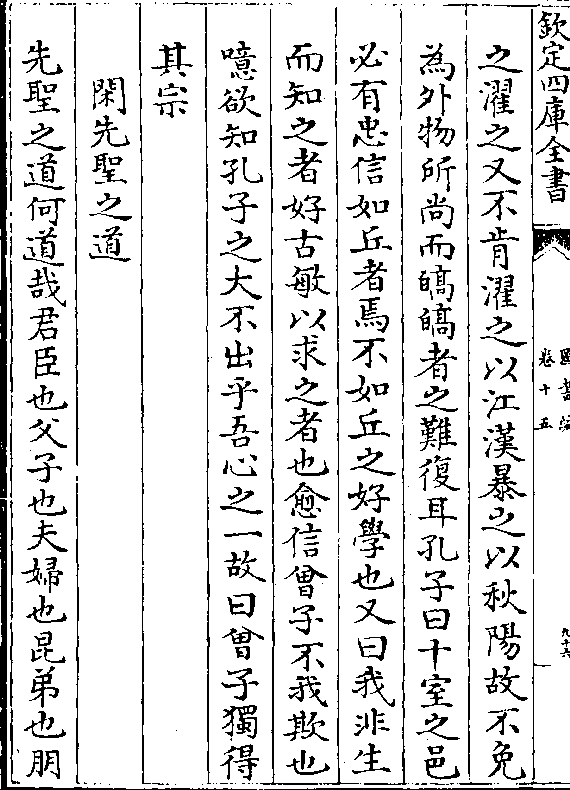 欽定四庫全書
圖書編
卷十五
九十六
之濯之又不肯濯之以江漢暴之以秋陽故不免
為外物所尚而皜皜者之難復耳孔子曰十室之邑
必有忠信如丘者焉不如丘之好學也又曰我非生
而知之者好古敏以求之者也愈信曾子不我欺也
噫欲知孔子之大不出乎吾心之一故曰曾子獨得
其宗
閑先聖之道
先聖之道何道哉君臣也父子也夫婦也昆弟也朋